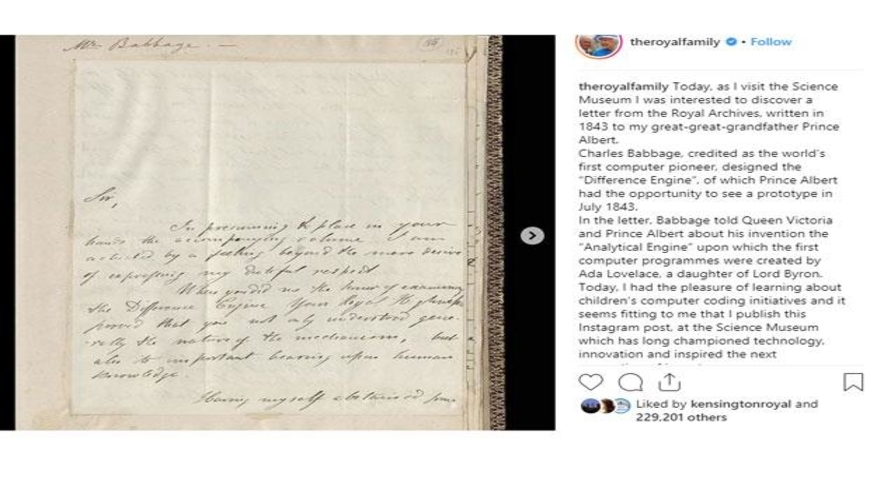 Mr Babbage. —
Sir,
In presuming to place in your
hands the accompanying volume I am
actuated by a feeling beyond the mere desire
of expressing my dutiful respect
When you did me the honor of examining
the Difference Engine Your Royal Highness
proved that you not only understood gene-
-rally the nature of the mechanism, but
also its important bearing upon human
knowledge.
Having myself abstained from
theroyalfamily • Follow
theroyalfamily Today, as I visit the Science
Museum I was interested to discover a
letter from the Royal Archives, written in
1843 to my great-great-grandfather Prince
Albert.
Charles Babbage, credited as the world's
first computer pioneer, designed the
"Difference Engine", of which Prince Albert
had the opportunity to see a prototype in
July 1843.
In the letter, Babbage told Queen Victoria
and Prince Albert about his invention the
"Analytical Engine" upon which the first
computer programmes were created by
Ada Lovelace, a daughter of Lord Byron.
Today, I had the pleasure of learning about
children's computer coding initiatives and it
seems fitting to me that I publish this
Instagram post, at the Science Museum
which has long championed technology,
innovation and inspired the next
Liked by kensingtonroyal and
229,201 others